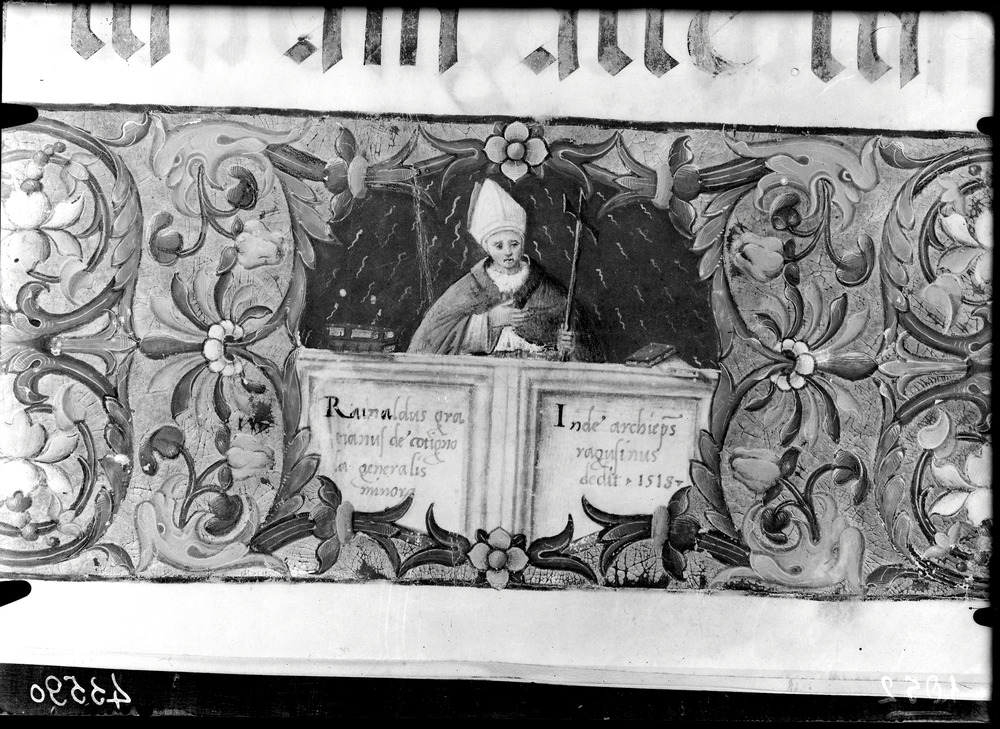 Rainaldus gra
tianus de cotigno
la generalis
minorū
Inde archiep̄s
ragusinus
dedit 1518
43590